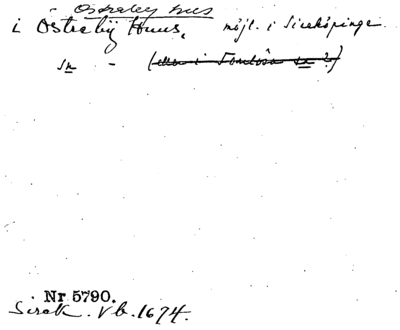 Östraby hus
i Östrabÿ Huus, möjl. i Sireköpinge
sn - (eller i Tomelösa sn ?)
Nr 5790.
Sirek. Vb. 1674.